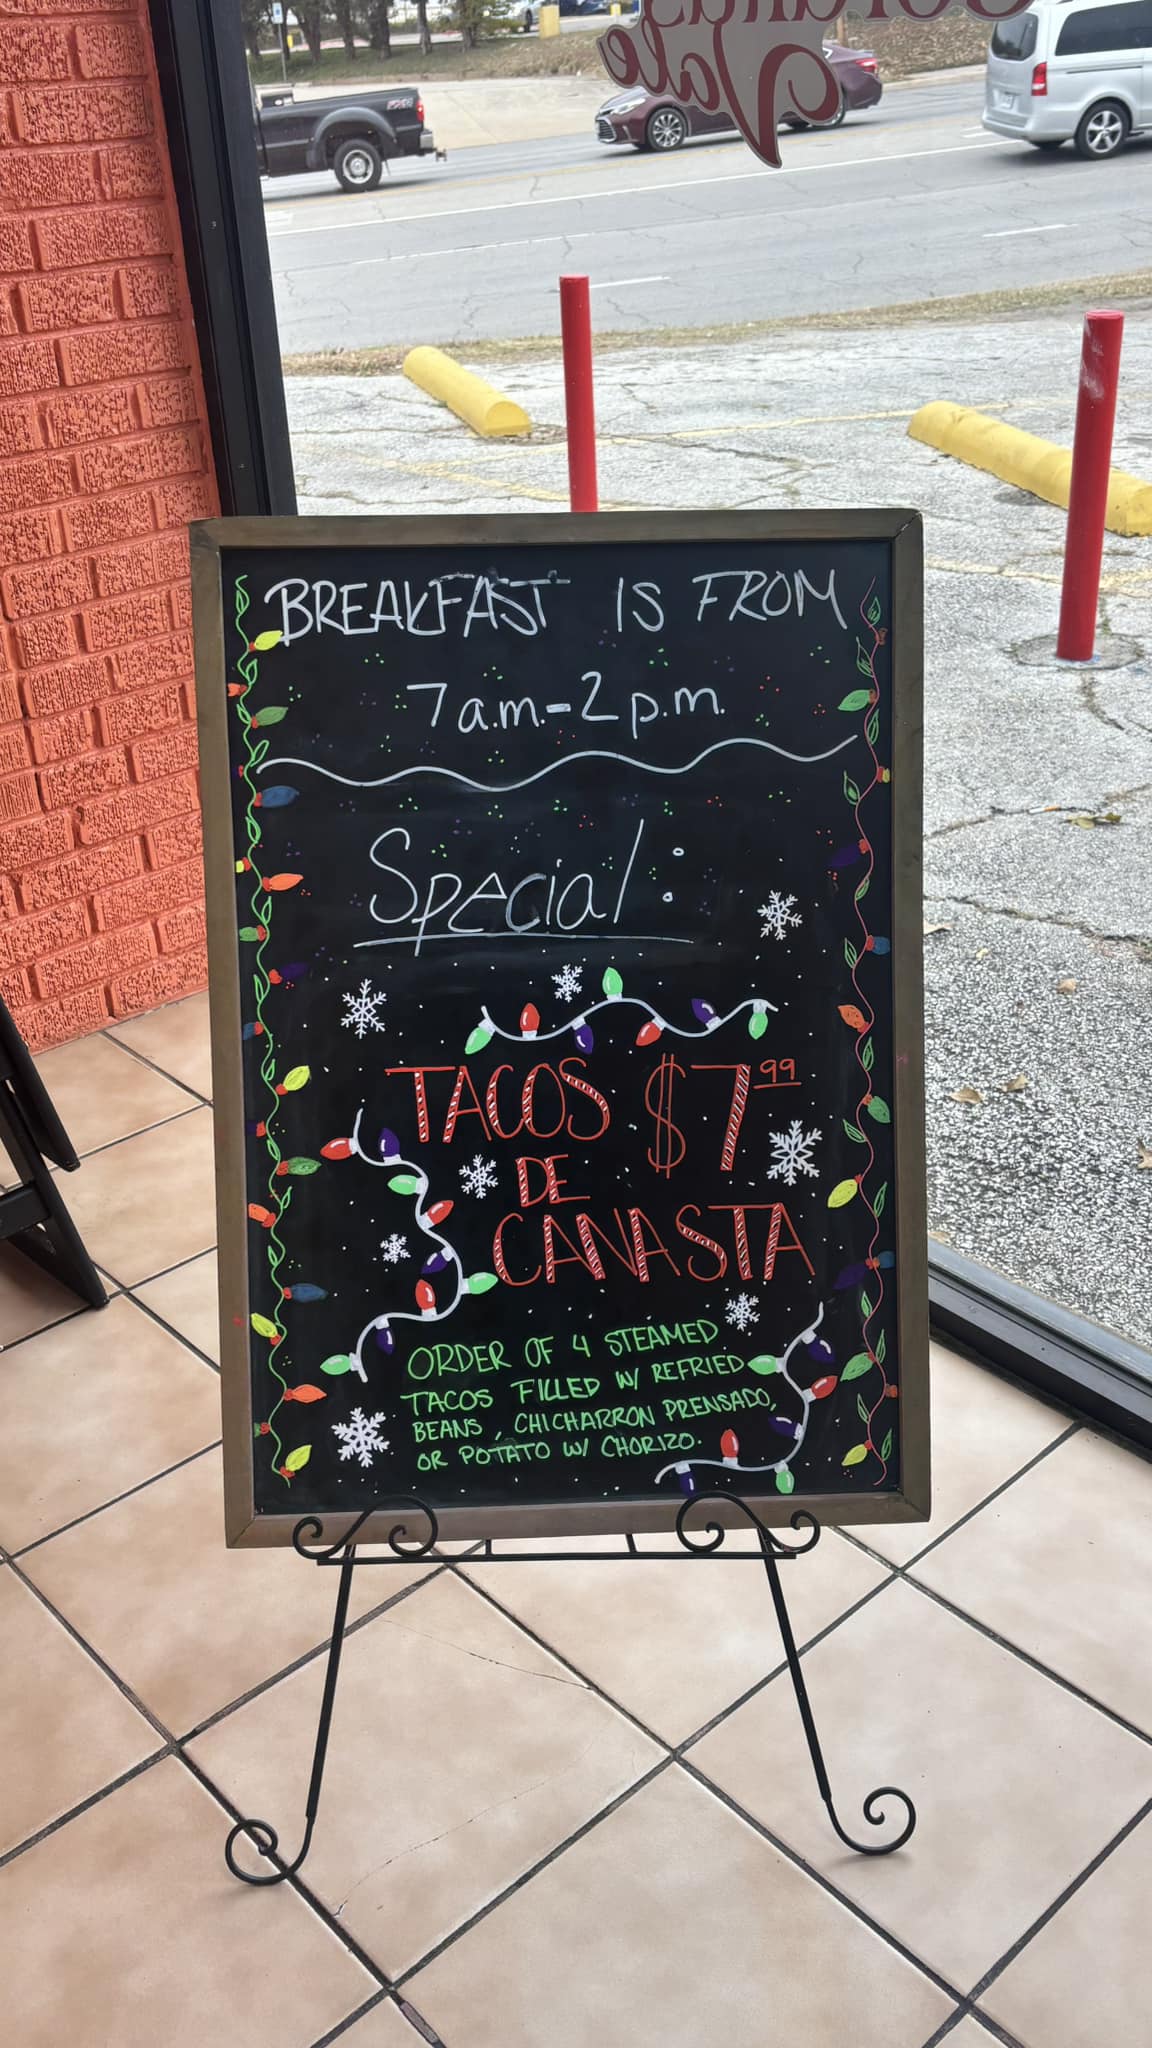 Vale
BREAKFAST IS FROM
7 a.m.-2 p.m.
Special:
TACOS $7.99
DE
CANASTA
ORDER OF 4 STEAMED
TACOS FILLED W/ REFRIED
BEANS, CHICHARRON PRENSADO,
OR POTATO W/ CHORIZO.